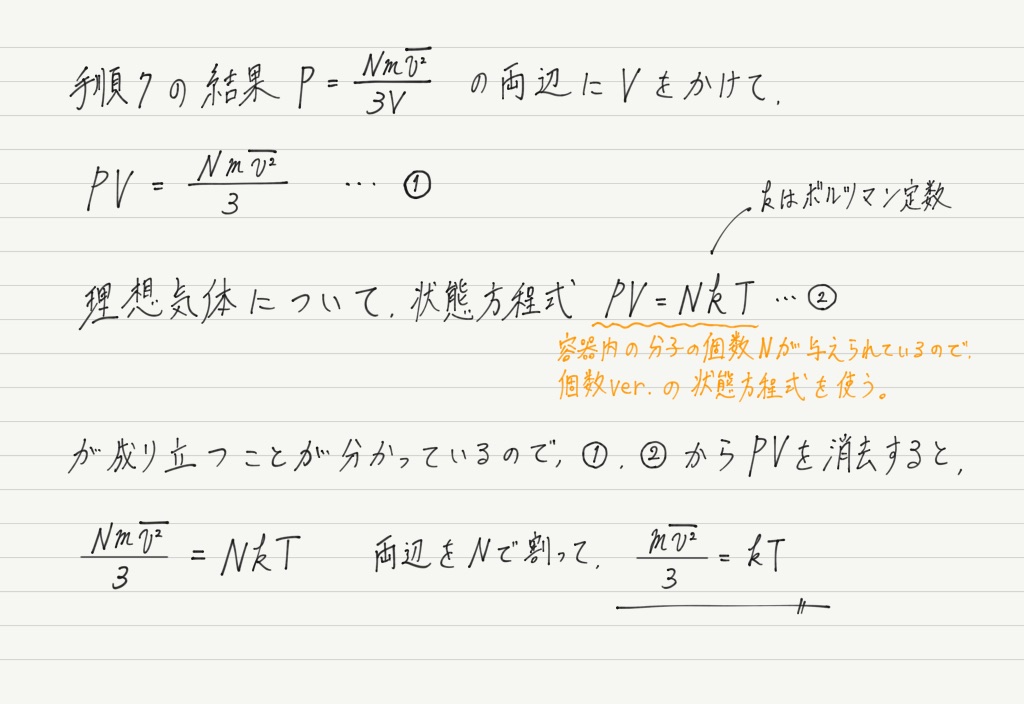 手順7の結果 P = Nm\overline{v²}/3V の両辺にVをかけて,
PV = Nm\overline{v²}/3 … ①
kはボルツマン定数
理想気体について, 状態方程式 PV = NkT … ②
容器内の分子の個数Nが与えられているので,
個数ver.の状態方程式を使う。
が成り立つことが分かっているので, ①, ②からPVを消去すると,
Nm\overline{v²}/3 = NkT 両辺をNで割って, m\overline{v²}/3 = kT